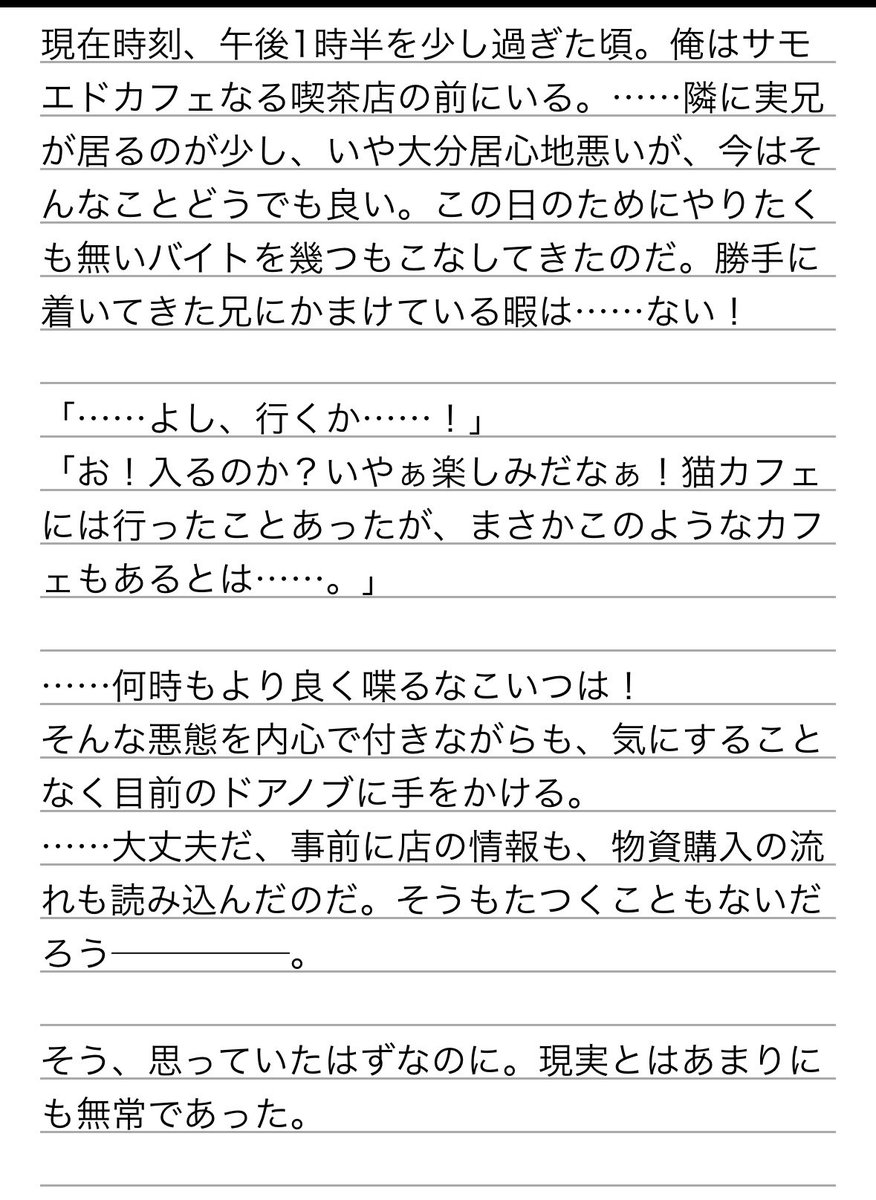 現在時刻、午後1時半を少し過ぎた頃。俺はサモ
エドカフェなる喫茶店の前にいる。……隣に実兄
が居るのが少し、いや大分居心地悪いが、今はそ
んなことどうでも良い。この日のためにやりたく
も無いバイトを幾つもこなしてきたのだ。勝手に
着いてきた兄にかまけている暇は……ない！
「……よし、行くか……！」
「お！入るのか？いやぁ楽しみだなぁ！猫カフェ
には行ったことあったが、まさかこのようなカフ
ェもあるとは……。」
……何時もより良く喋るなこいつは！
そんな悪態を内心で付きながらも、気にすること
なく目前のドアノブに手をかける。
……大丈夫だ、事前に店の情報も、物資購入の流
れも読み込んだのだ。そうもたつくこともないだ
ろう─────。
そう、思っていたはずなのに。現実とはあまりに
も無常であった。